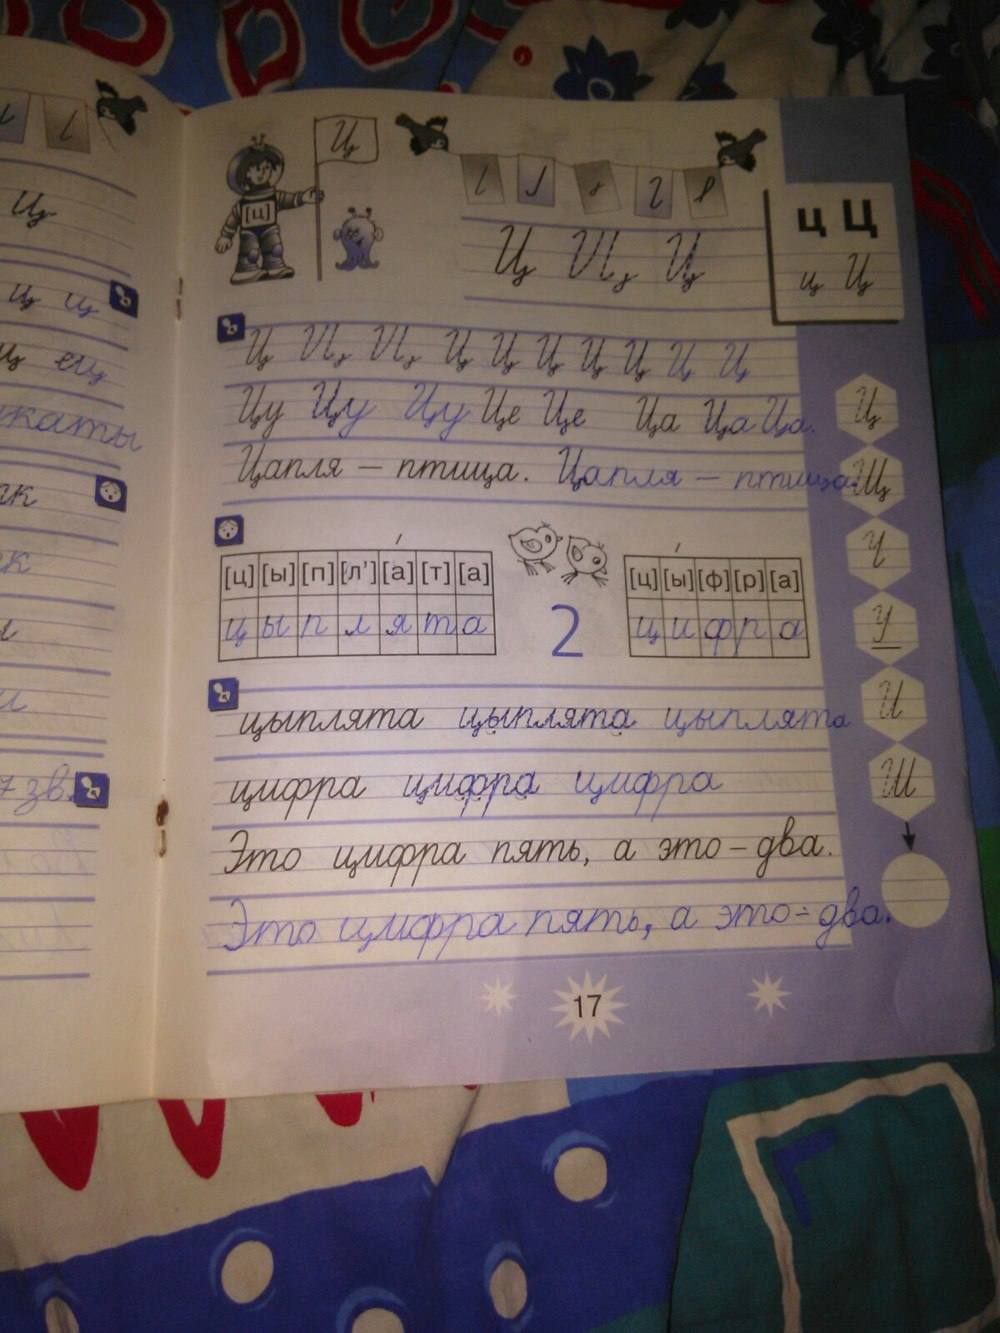 Ц
[ц]
ц Ц
ц Ц
Ц Ц
Ц Ц Ц Ц Ц Ц Ц
Цу Цу Цу Це Це Ца Ца Ца.
Цапля – птица. Цапля – птица.
[ц] [ы] [п] [л'] [а] [т] [а]
ц ы п л я т а
2
[ц] [ы] [ф] [р] [а]
ц и ф р а
цыплята цыплята цыплята
цифра цифра цифра
Это цифра пять, а это – два.
Это цифра пять, а это – два.
17
Ц
Щ
Ч
У
И
Ш
Ц
ц ц
ц ещ
каты
ак
к
7 зв.